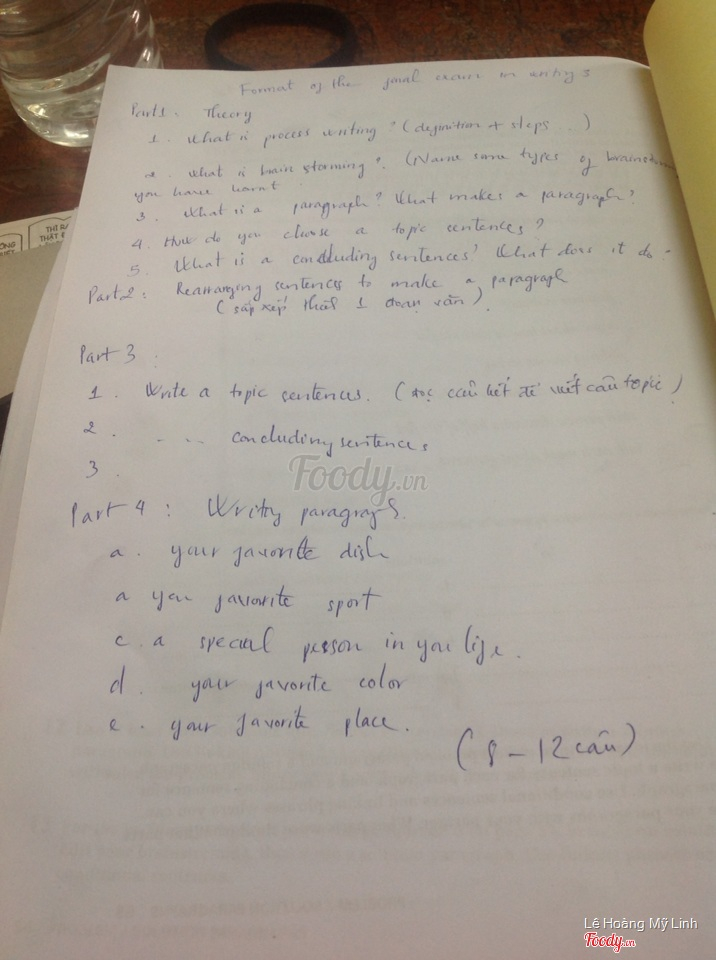 Format of the final exam in writing 3
Part 1: Theory
1. What is process writing? (definition + steps ...)
2. What is brain storming? (Name some types of brainstorm
you have learnt
3. What is a paragraph? What makes a paragraph?
4. How do you choose a topic sentences?
5. What is a concluding sentences? What does it do.
Part 2: Rearranging sentences to make a paragraph
(sắp xếp thành 1 đoạn văn)
Part 3:
1. Write a topic sentences. (đọc câu kết để viết câu topic)
2. - - - concluding sentences
3.
Foody.vn
Part 4: Writing paragraph.
a. your favorite dish
a you favorite sport
c. a special person in you life.
d. your favorite color
e. your favorite place.
(8 - 12 câu)
Lê Hoàng Mỹ Linh
Foody.vn